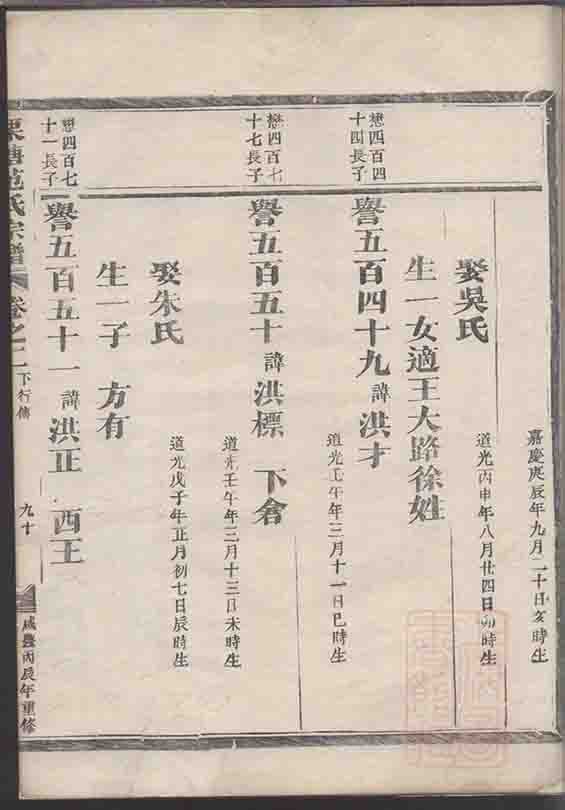 嘉慶庚辰年九月二十日亥時生
娶吳氏
道光丙申年八月廿四日卯時生
生一女適王大路徐姓
懋四百四
十四長子
譽五百四十九 諱洪才
道光壬午年三月十一日巳時生
懋四百七
十七長子
譽五百五十 諱洪標 下倉
道光壬午年三月十三日未時生
娶朱氏
道光戊子年正月初七日辰時生
生一子 方有
懋四百七
十一長子
譽五百五十一 諱洪正 西王
范氏宗譜 卷之二 下行傳 九十 咸豐丙辰年重修